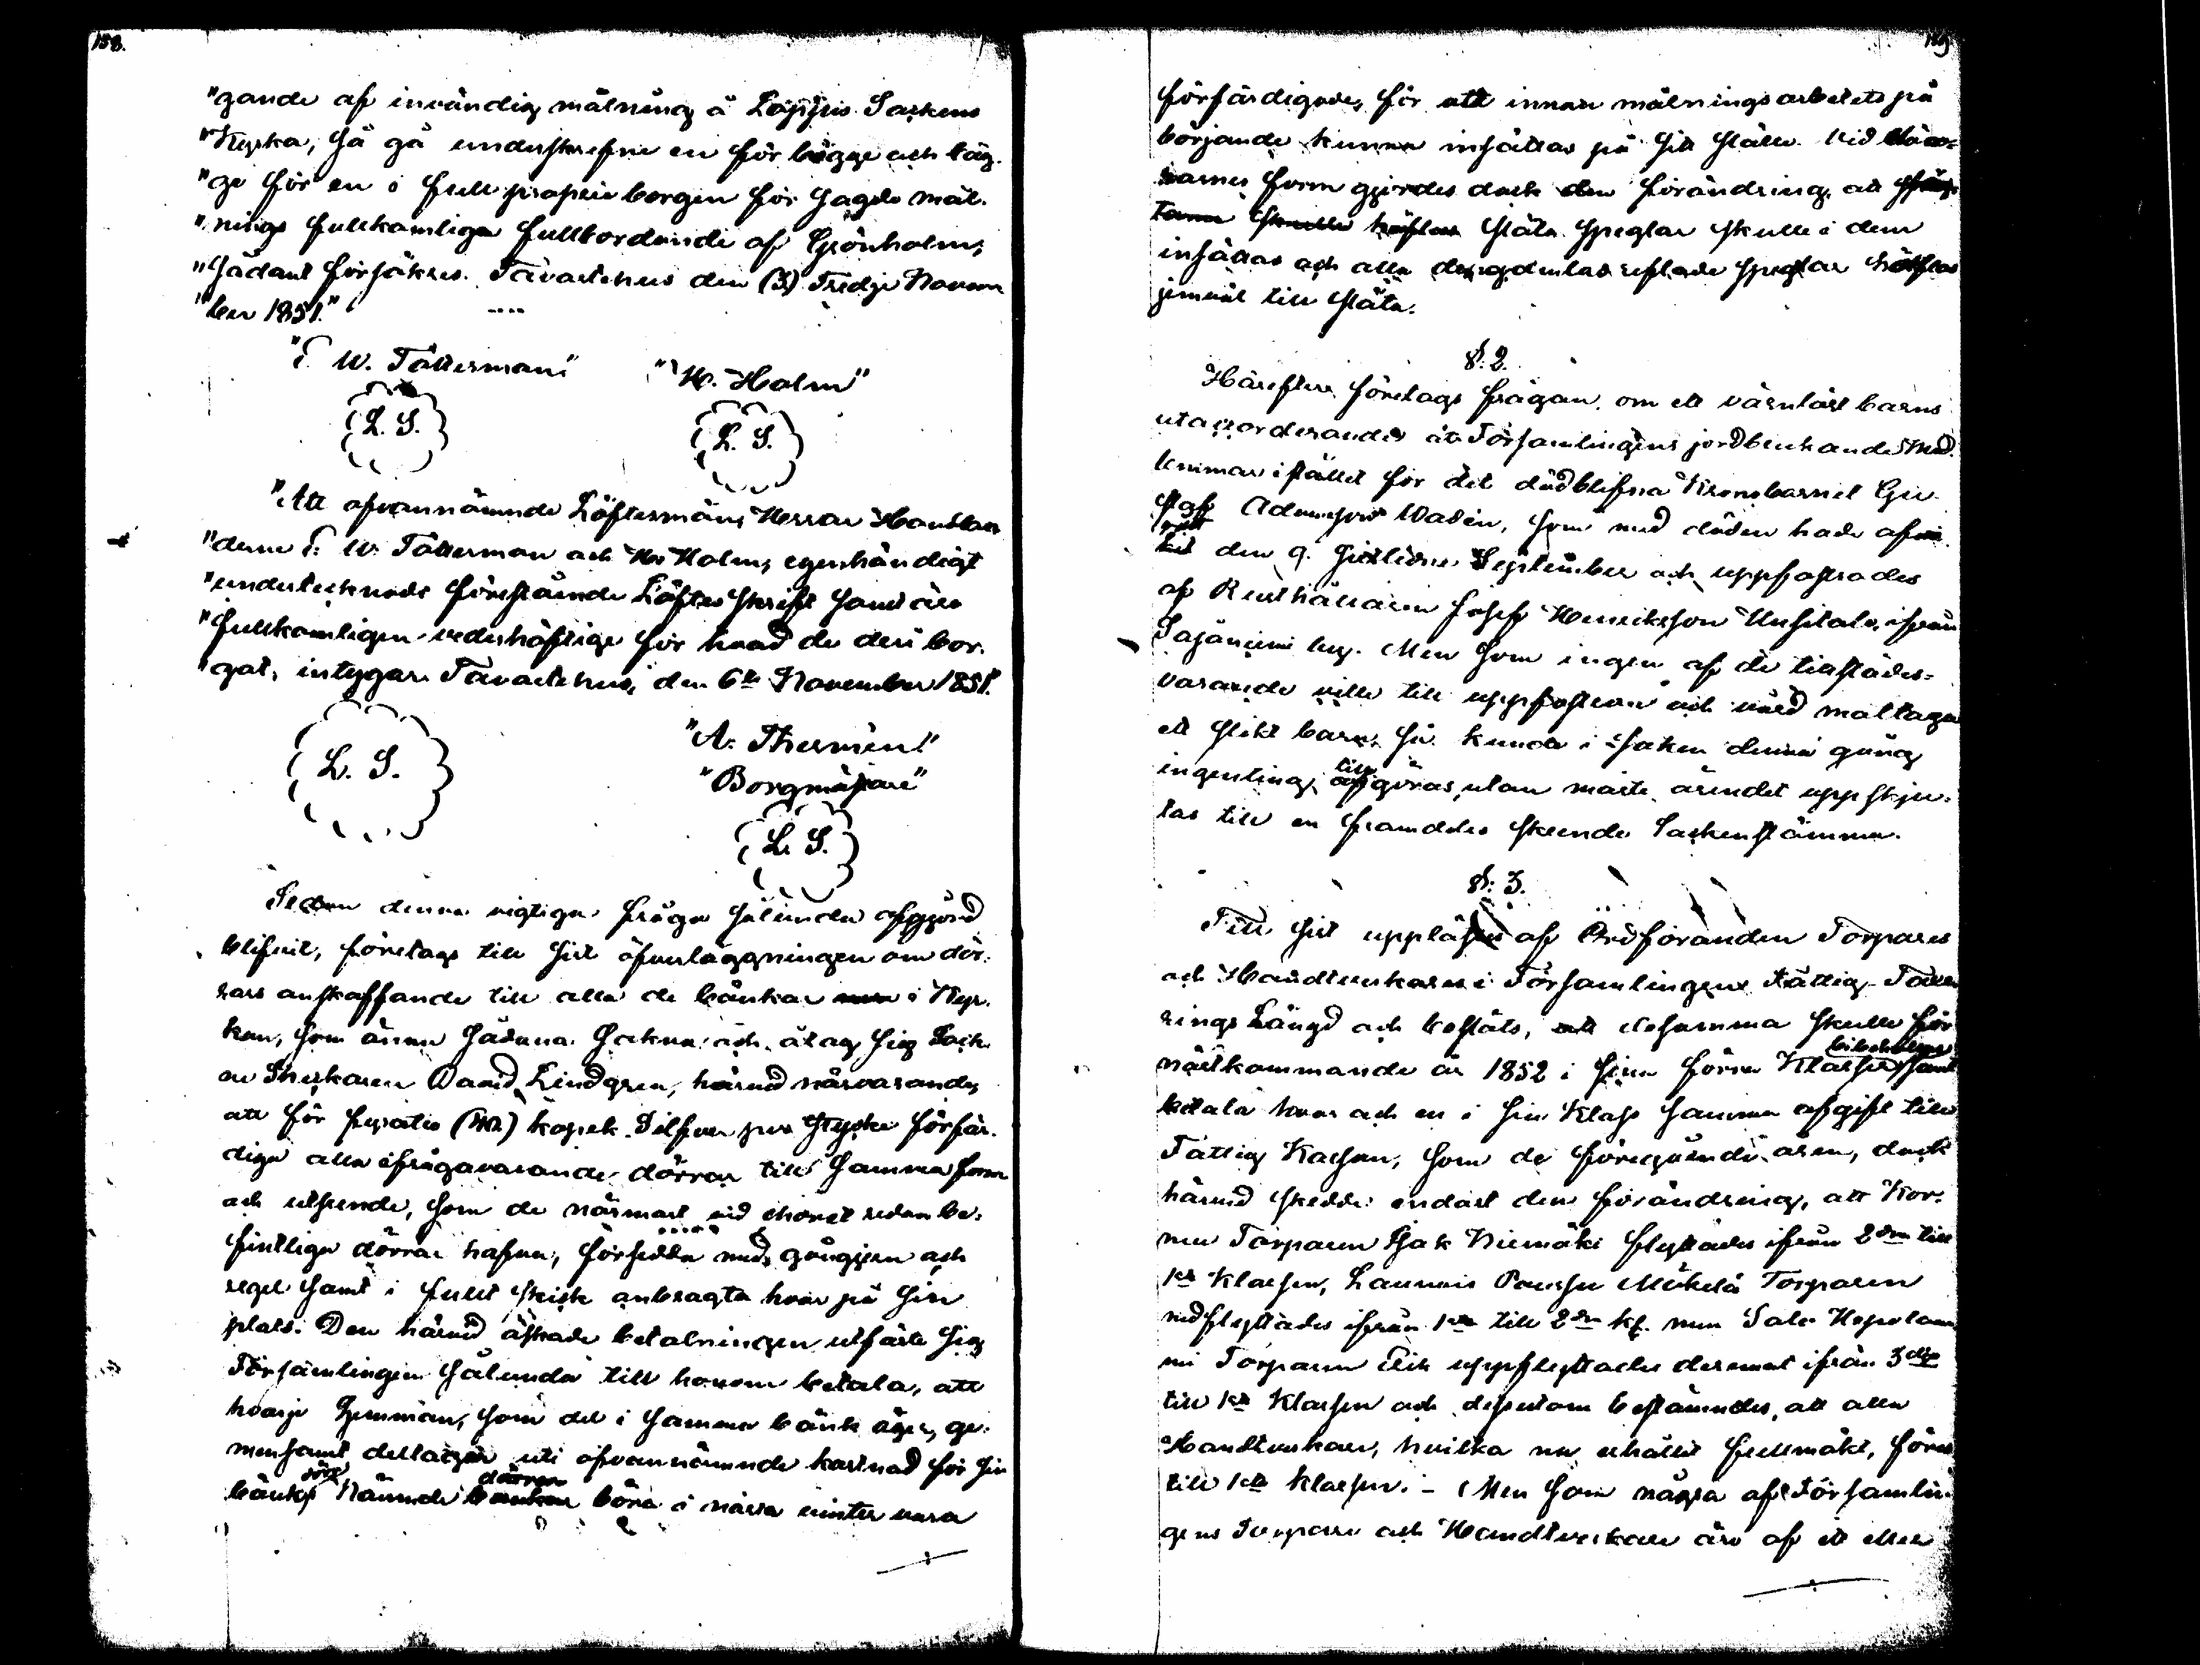 158.
"gande af invändig målning å Loppis Sockens
"Kyrka, så gå undertecknne en för bägge och bäg-
"ge för en i full proprieborgen för sagde mål-
"nings fullkomliga fullbordande af Grönholm;
"sådant försäkres. Tavastehus den (3) Tredje Novem
"ber 1851."
"F. W. Tötterman" "W. Holm"
L. S. L. S.
"Att ofvannämnde Löftesmän, Herrar Handlan
"derne F. W. Tötterman och W. Holm, egenhändigt
"undertecknade förestående Löftes skrift samt äro
"fullkomligen vederhäftige för hvad de deri bor-
"gat, intygar. Tavastehus, den 6te November 1851.
L. S. "A. Thermén!"
"Borgmästare"
L. S.
Sedan denna vigtiga fråga sålunda afgjord
blifvit, företogs till sist öfverläggningen om dör-
rars anskaffande till alla de bänkar i Kyr-
kan, som ännu sådana sakna och åtog sig Sock-
ne Snickaren David Lindgren, härvid närvarande,
att för fyratio (40) kopek Silfver pr stycke förfär-
diga alla ifrågavarande dörrar till samma form
och utseende, som de närmast vid choret redan be-
fintliga dörrar hafva, försedda med gångjern och
regel samt i fullt skick anbragta hvar på sin
plats. Den härvid åsyftade betalningen utfäste sig
Församlingen sålunda till honom betala, att
hvarje Hemman, som del i samma bänk äger, ge-
mensamt deltager uti ofvannämnde kostnad för sin
bänks dörr. Nämnde dörrar böra i nästa vinter vara
159
förfärdigade, för att innan målningsarbetets på
börjande kunna insättas på sitt ställe. Vid dörr-
arnes form gjordes dock den förändring, att
skulle släta speglar skulle i dem
insättas och alla de gamlas reflade speglar
jemväl till släta.
§. 2.
Härefter företogs frågan om ett värnlöst barns
utackorderande åt Församlingens jordbrukande Med-
lemmar istället för det dödblifna Kronobarnet Gu-
staf Adamsson Wadén, som med döden hade af-
gått den 9. sistlidne September och uppfostrades
af Rusthållaren Josef Henriksson Uusitalo, ifrån
Sajaniemi by. Men som ingen af de tillstädes-
varande ville till uppfostran och vård mottaga
ett slikt barn, så kunde i saken denna gång
ingenting tillgöras, utan måste ärendet uppskju-
tas till en framdeles skeende Sockenstämma.
§: 3.
Till sist upplästes af Ordföranden Torpares
och Handtverkares i Församlingens Fattig-Taxe
rings Längd och beslöts, att desamma skulle för
nästkommande år 1852 i sina förra Klasser bibehållas samt
betala hvar och en i sin Klass samma afgift till
Fattig Kassan, som de föregående åren, dock
härvid skedde endast den förändring, att Kor-
mu Torparen Isak Niemäki flyttades ifrån 2dra till
1sta Klassen, Launois Paasso Mäkelä Torparen
nedflyttades ifrån 1sta till 2dra kl. men Salo Hepolam
mi Torparen Erik uppflyttades deremot ifrån 3dje
till 1sta Klassen och dessutom bestämdes, att alla
Handtverkare, hvilka nu erhållit fullmakt, föras
till 1sta Klassen. - Men som några af Församlin-
gens Torpare och Handtverkare äro af ett eller